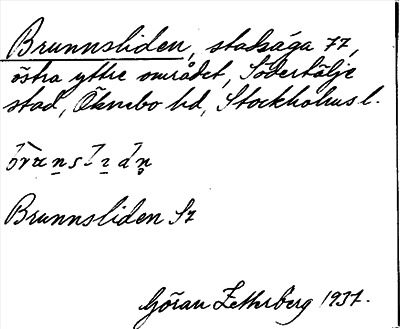 Brunnsliden, stadsäga 77,
östra yttre området, Södertälje
stad, Öknebo hd, Stockholms l.
Brunnsliden 57
Göran Zetterberg 1937.